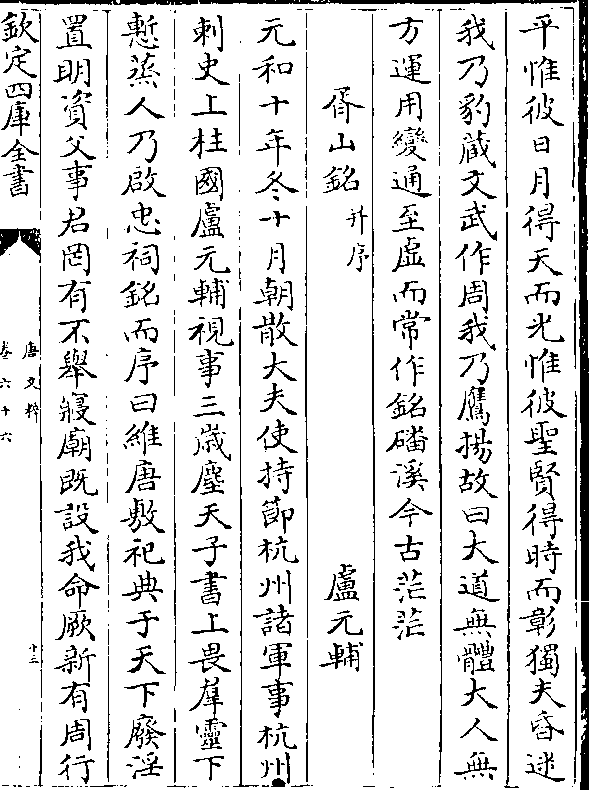 平惟彼日月得天而光惟彼聖賢得時而彰獨夫昏迷
我乃豹蔵文武作周我乃鷹揚故曰大道無體大人無
方運用變通至虛而常作銘磻溪今古茫茫
胥山銘并序　盧元輔
元和十年冬十月朝散大夫使持節杭州諸軍事杭州
刺史上柱國盧元輔視事三嵗塵天子書上畏羣靈下
慙蒸人乃啟忠祠銘而序曰維唐敷祀典于天下廢淫
置明資父事君罔有不舉寢廟既設我命厥新有周行
欽定四庫全書
唐文粹
卷六十六
十三